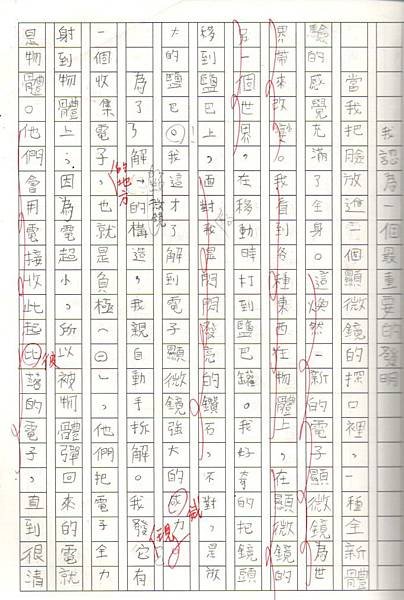 我認為一個最重要的發明
當我把臉放進一個顯微鏡的探口裡,一種全新體
驗的感覺充滿了全身。這煥然一新的電子顯微鏡為世
界帶來改變。我看到各種東西在物體上,在顯微鏡的
另一個世界,在移動時打到鹽巴罐。我好奇的把鏡頭
移到鹽巴上,面對我是閃閃發亮的鑽石,不對,是放
大的鹽巴。我這才了解到電子顯微鏡強大的威力
為了了解顯微鏡的構造,我親自動手拆解。我發現它有
一個收集電子的地方,也就是負極(-),他們把電子全力
射到物體上;因為電超小,所以被物體彈回來的電就
是物體。他們會用電接收此起彼落的電子,直到很清